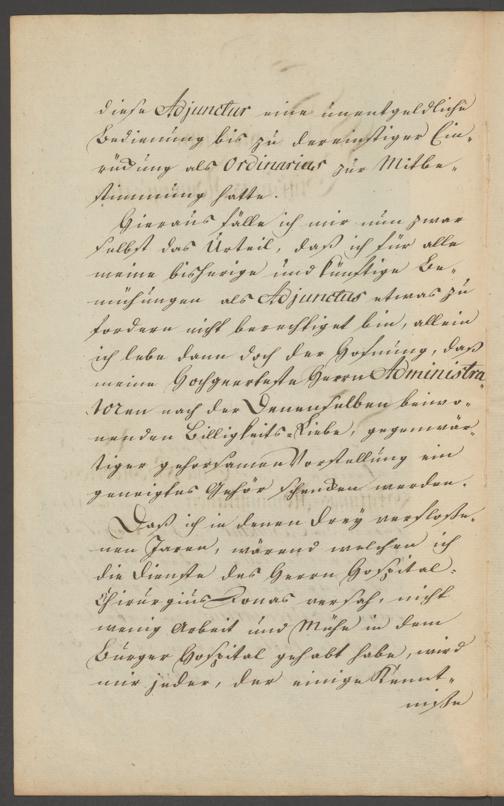 diese Adjunctur eine unentgeldliche
Bedienung bis zu dereinstiger Ein-
rückung als Ordinarius zur Mitbe-
stimmung hatte.
Hieraus fälle ich mir nun zwar
selbst das Urteil, daß ich für alle
meine bisherige und künftige Be-
mühungen als Adjunctus etwas zu
fordern nicht berechtiget bin, allein
ich lebe dann doch der Hofnung, daß
meine Hochgeerteste Herrn Administra-
toren nach der Denenselben beiwo-
nenden Billigkeits-Liebe, gegenwär-
tiger gehorsamen Vorstellung ein
geneigtes Gehör schenken werden.
Daß ich in denen drey verflosse-
nen Jaren, wärend welchen ich
die Dienste des Herrn Hospital-
Chirurgius Jonas versah, nicht
wenig Arbeit und Mühe in dem
Bürger Hospital gehabt habe, wird
mir jeder, der einige Kennt-
nisse